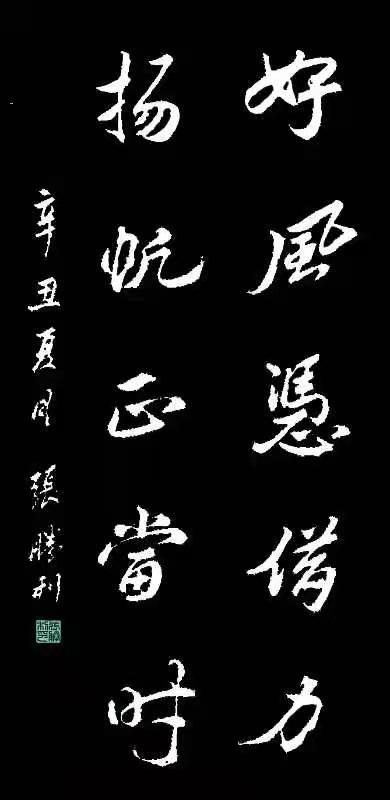 好風憑借力
扬帆正當时
辛丑夏月 張勝利